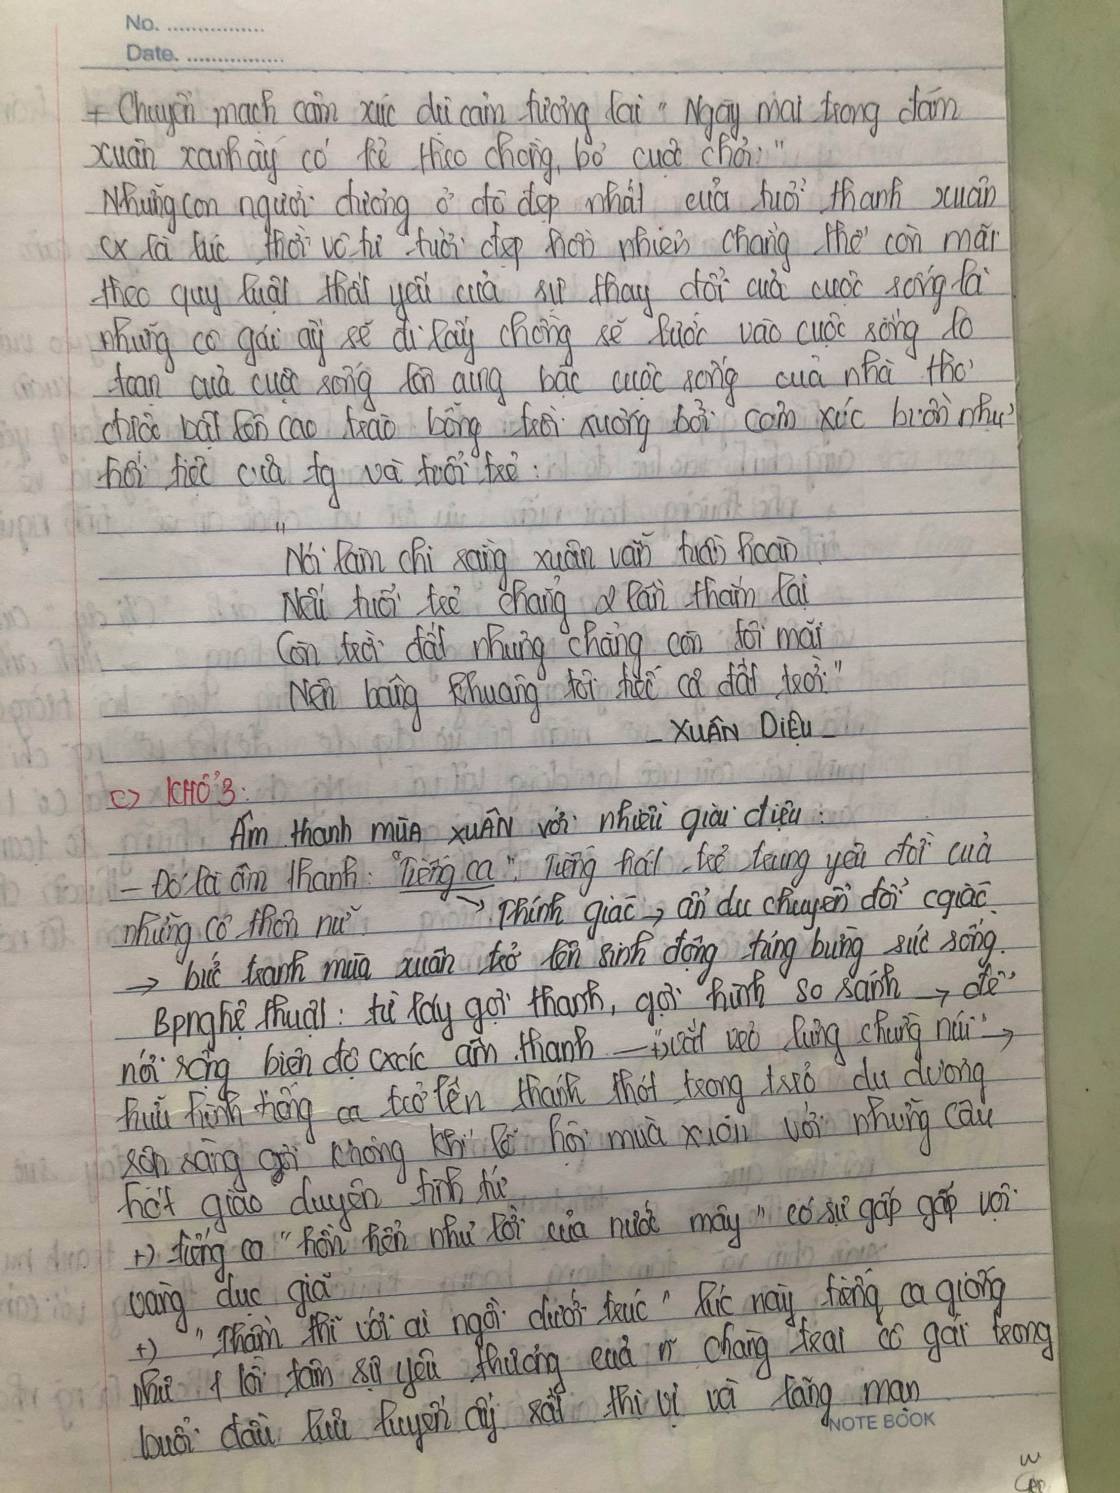 No. ................
Date. ................
+ Chuyển mạch cảm xúc dự cảm tương lai " Ngày mai trong đám
xuân xanh ấy có kẻ theo chồng bỏ cuộc chơi "
Những con người đương ở độ đẹp nhất của tuổi thanh xuân
là lúc thời vô tư tươi đẹp hồn nhiên chẳng thể còn mãi
theo quy luật tất yếu của sự thay đổi của cuộc sống là
những cô gái ấy sẽ đi lấy chồng sẽ bước vào cuộc sống lo
toan của cuộc sống bậc cuộc sống của nhà thơ
được bật lên cao trào bỗng trời xuống bởi cảm xúc buồn như
hối tiếc của tg và tuổi trẻ :
"
Nói làm chi rằng xuân vẫn tuần hoàn
Nếu tuổi trẻ chẳng 2 lần thắm lại
Còn trời đất nhưng chẳng còn tôi mãi
Nên bâng khuâng tôi tiếc cả đất trời "
_ XUÂN DIỆU _
c) KHỔ 3 :
Âm thanh mùa xuân với nhiều giai điệu :
– Đó là âm thanh : "Tiếng ca" : Tiếng hát trẻ trung yêu đời của
những cô thôn nữ → Thính giác → ẩn dụ chuyển đổi cgiác
→ bức tranh mùa xuân trở lên sinh động tưng bừng sức sống.
Bpnghệ thuật : từ láy gợi thanh, gợi hình so sánh → để
nói rộng biên độ âm thanh vắt vẻo lưng chừng núi " →
hữu hình tiếng ca trở lên thánh thót trong trẻo du dương
rộn ràng gợi không khí lễ hội mùa xuân với những câu
hát giao duyên tình tứ
+) tiếng ca " hổn hển như lời của nước mây " có sự gấp gấp vội
vàng dục giã
+) " Thầm thĩ với ai ngồi dưới trúc " lúc này tiếng ca giống
như 1 lời tâm sự yêu thương của chàng trai cô gái trong
buổi đầu lưu luyến ấy rất thi vị và lãng mạn
NOTE BOOK